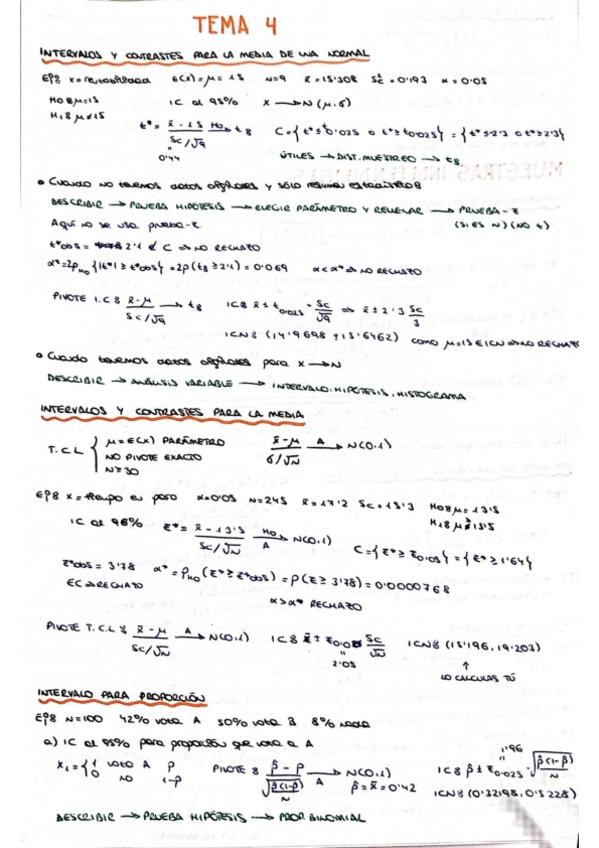 TEMA 4
INTERVALOS Y CONTRASTES PARA LA MEDIA DE UNA NORMAL
Ej: X = rentabilidad E(x) = μ = 15 N=9 x̄ = 15'308 Sc² = 0'193 α = 0'05
H0: μ=15 IC al 95% X → N(μ,σ)
H1: μ≠15
t* = x̄ - 15 / Sc/√9 H0→ t8 C = {t* ≤ t0'025 o t* ≥ t0'025} = {t* ≤ 2'3 o t* ≥ 2'3}
0'44
ÚTILES → DIST. MUESTREO → t8
• Cuando no tenemos datos originales y sólo resumen estadístico:
DESCRIBIR → PRUEBA HIPÓTESIS → ELEGIR PARÁMETRO Y RELLENAR → PRUEBA-Z
Aquí no se usa prueba-Z (SI ES N) (NO t)
t*obs = 2'1 ∉ C ⇒ NO RECHAZO
α* = 2P H0 {|t*| ≥ t*obs} = 2P(t8 ≥ 2'1) = 0'069 α < α* ⇒ NO RECHAZO
PIVOTE I.C: x̄ - μ / Sc/√9 → t8 IC: x̄ ± t0'025 · Sc/√9 ⇒ x̄ ± 2'3 Sc/3
ICN: (14'9698, 15'6462) como μ=15 ∈ ICN ⇒ NO RECHAZO
• Cuando tenemos datos originales para X → N
DESCRIBIR → ANÁLISIS VARIABLE → INTERVALO, HIPÓTESIS, HISTOGRAMA
INTERVALOS Y CONTRASTES PARA LA MEDIA
T.C.L { μ = E(x) PARÁMETRO x̄ - μ / σ/√N A→ N(0,1)
NO PIVOTE EXACTO
N ≥ 30
Ej: X = tiempo en paro α=0'05 N=245 x̄ = 17'2 Sc = 15'3 H0: μ = 13'5
H1: μ > 13'5
IC al 96% Z* = x̄ - 13'5 / Sc/√N H0→ A N(0,1) C = {Z* ≥ Z0'05} = {Z* ≥ 1'64}
Z*obs = 3'78 α* = P H0 (Z* ≥ Z*obs) = P(Z ≥ 3'78) = 0'0000768
∈ C ⇒ RECHAZO α > α* RECHAZO
PIVOTE T.C.L: x̄ - μ / Sc/√N A→ N(0,1) IC: x̄ ± Z0'02 Sc/√N ICN: (15'196, 19'203)
2'05 ↑
LO CALCULAS TÚ
INTERVALO PARA PROPORCIÓN
Ej: N=100 42% vota A 50% vota B 8% nada
a) IC al 95% para proporción que vota a A
Xi = {1 VOTO A P PIVOTE: p̂ - p / √p̂(1-p̂)/N A→ N(0,1) IC: p̂ ± Z0'025 · √p̂(1-p̂)/N
0 NO 1-P p̂ = x̄ = 0'42 1'96
ICN: (0'32198, 0'5228)
DESCRIBIR → PRUEBA HIPÓTESIS → PROP. BINOMIAL